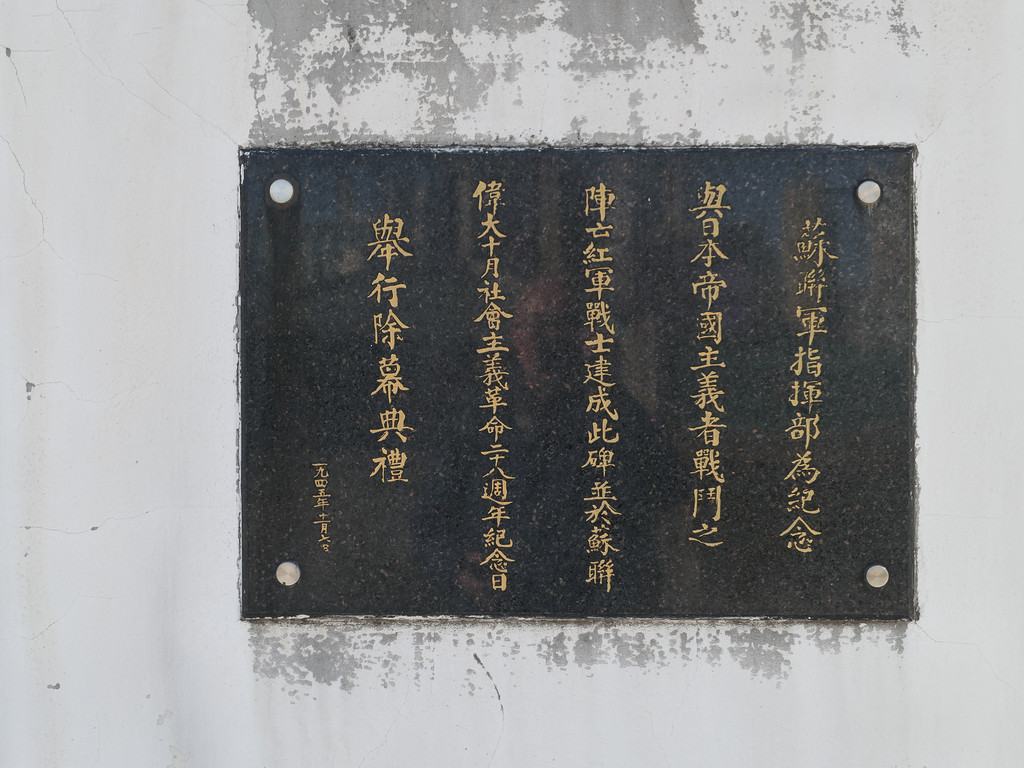 蘇聯軍指揮部為紀念
與日本帝國主義者戰鬥之
陣亡紅軍戰士建成此碑並於蘇聯
偉大十月社會主義革命二十八週年紀念日
舉行除幕典禮
一九四五年十一月六日